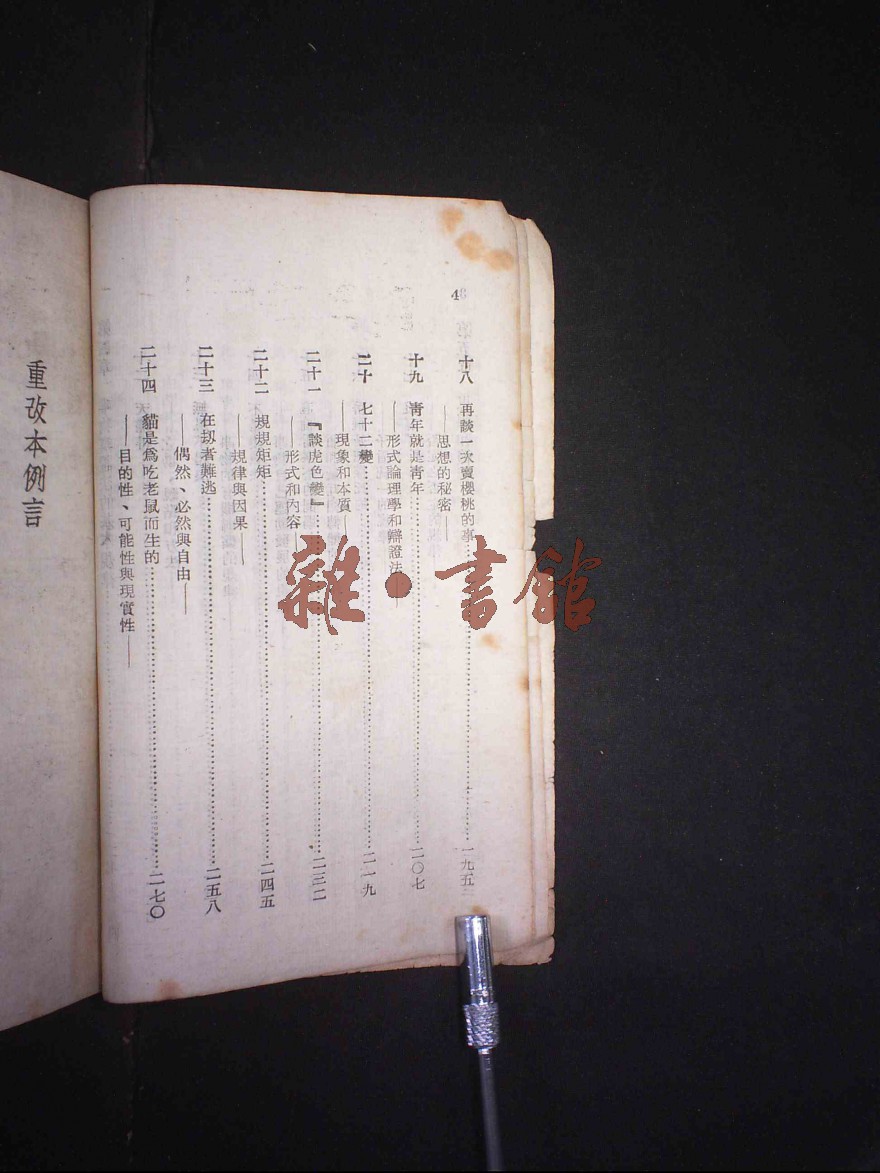 4
十八 再談一次賣櫻桃的事……一九五
——思想的秘密——
十九 青年就是青年……二〇七
——形式論理學和辯證法——
二十 七十二變……二一九
——現象和本質——
二十一 『談虎色變』……二三二
——形式和內容——
二十二 規規矩矩……二四五
——規律與因果——
二十三 在刼者難逃……二五八
——偶然、必然與自由——
二十四 貓是爲吃老鼠而生的……二七〇
——目的性、可能性與現實性——
重改本例言
雜·書館